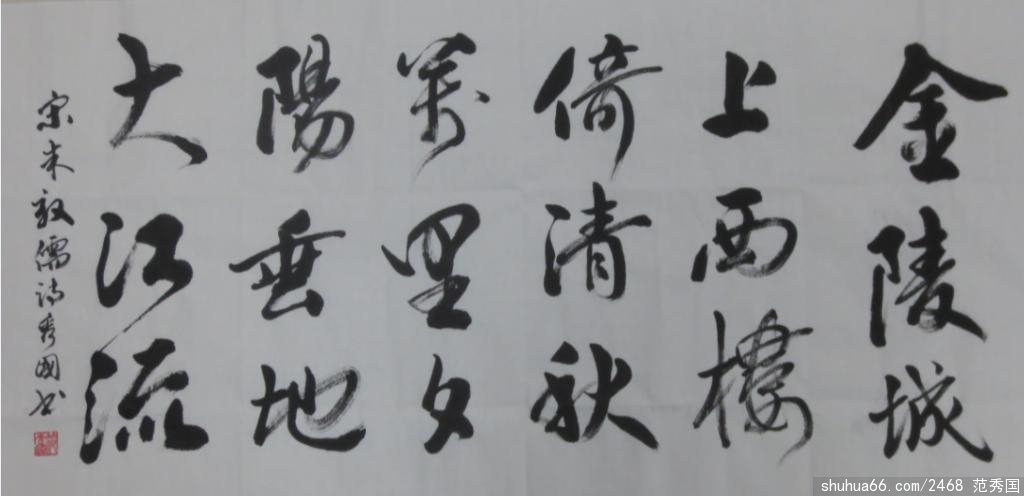 金陵城
上西樓
倚清秋
萬里夕
陽垂地
大江流
宋朱敦儒詩秀國书
shuhua66.com/2468 范秀国